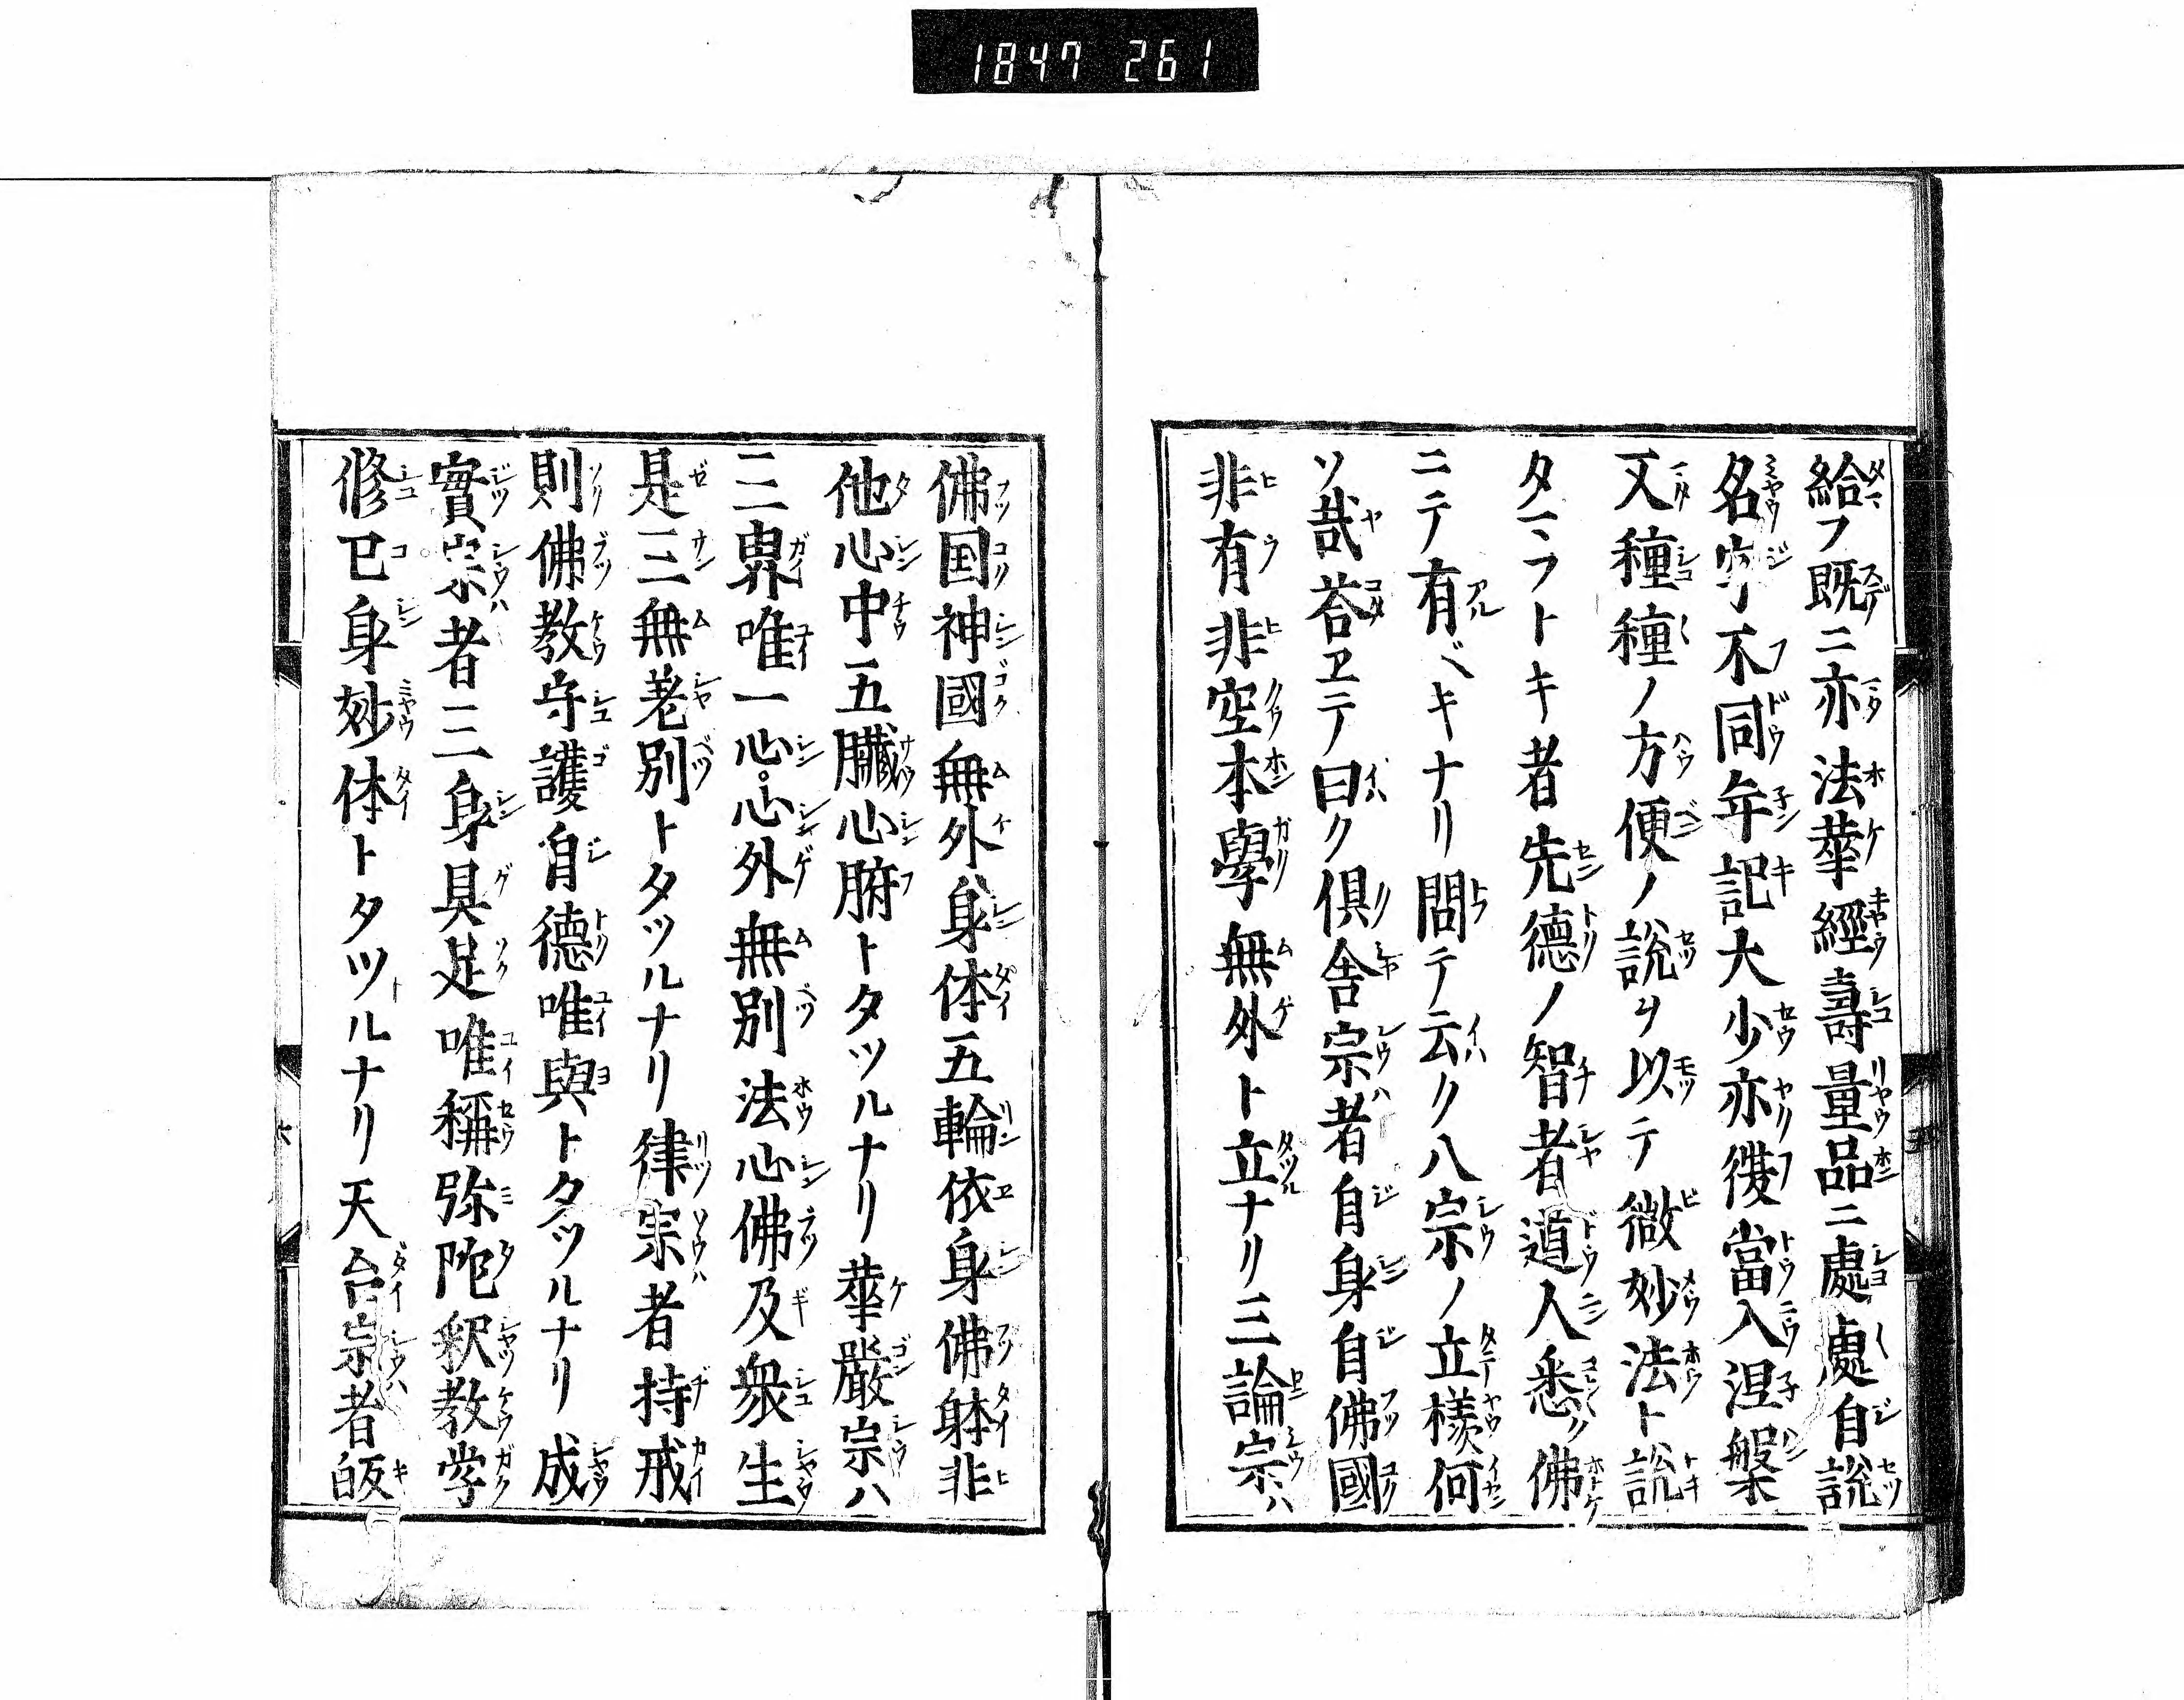 1847 261
給フ既ニ亦法華經壽量品ニ處處自說
名字不同年記大少亦復當入涅槃
又種種ノ方便ノ說ヲ以テ微妙法ト說
タマフトキ者先德ノ智者道人悉ク佛
ニテ有ベキナリ問テ云ク八宗ノ立樣何
ソ哉荅ヱテ曰ク倶舍宗者自身自佛國
非有非空本學無外ト立ナリ三論宗ハ
佛国神國無外身体五輪依身佛躰非
他心中五臓心腑トタツルナリ華嚴宗ハ
三界唯一心心外無別法心佛及衆生
是三無差別トタツルナリ律宗者持戒
則佛教守護自德唯與トタツルナリ成
實宗者三身具足唯稱弥陀釈教学
修己身妙体トタツルナリ天台宗者皈
六